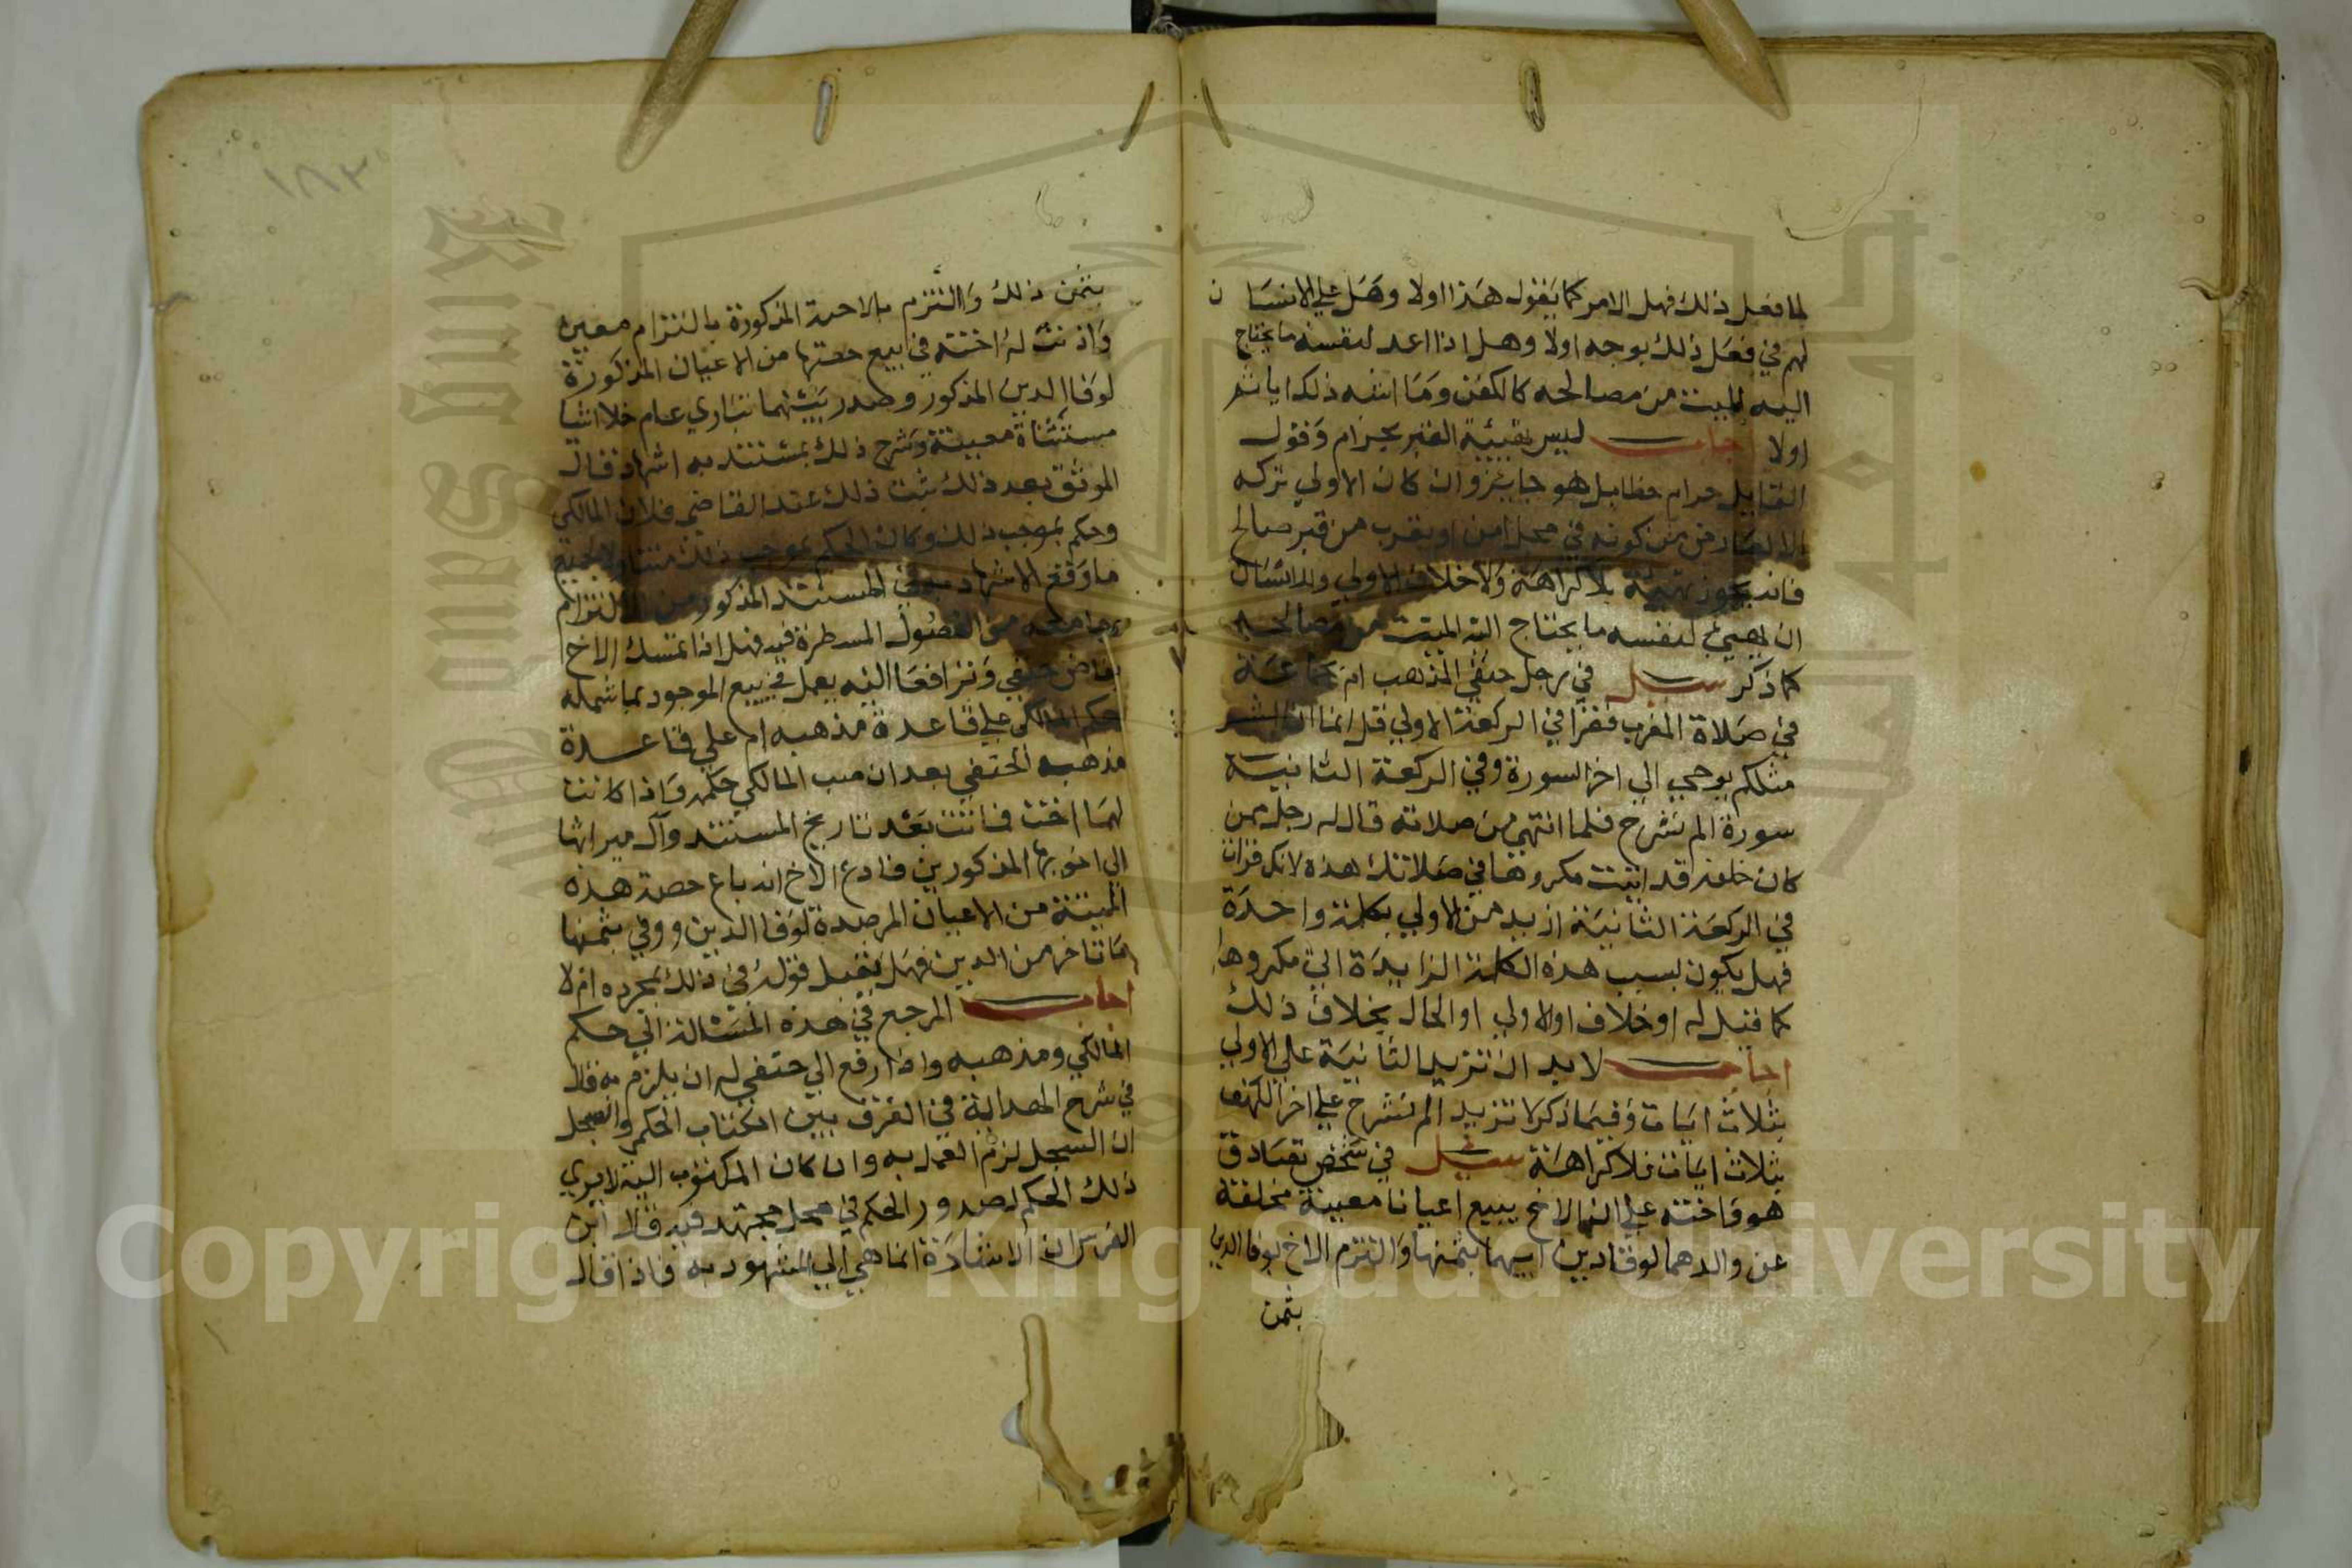 لما فعل ذلك فهل الامر كما يقول هذا اولا وهل علي الانسان
لهم في فعل ذلك بوجه اولا وهل اذا اعد لنفسه ما يحتاج
اليه الميت من مصالحه كالكفن وما اشبه ذلك اياثم
اولا اجاب ليس بتهيئة القبر بحرام وقول
القايل حرام خطا بل هو جايز وان كان الاولي تركه
كونه في محل امن او بقرب من قبر صالح
فانه يجوز تهيئته بلا كراهة ولا خلاف الاولي وللانسان
ان يهيئ لنفسه ما يحتاج اليه الميت من مصالحه
كما ذكر سيل في رجل حنفي المذهب ام بجماعة
في صلاة المغرب فقرا في الركعة الاولي قل انما انا بشر
مثلكم يوحي الي اخر السورة وفي الركعة الثانية
سورة الم نشرح فلما انتهي من صلاته قال له رجل ممن
كان خلفه قد اتيت مكروها في صلاتك هذه لانك قرات
في الركعة الثانية ازيد من الاولي بكلمة واحدة
فهل يكون بسبب هذه الكلمة الزايدة اتي مكروها
كما قيل له او خلاف الاولي او الحال بخلاف ذلك
اجاب لابد ان تزيد الثانية علي الاولي
بثلاث ايات وفيما ذكر لا تزيد الم نشرح علي اخر الكهف
بثلاث ايات فلا كراهة سيل في شخص تصادق
هو واخته علي ان الاخ يبيع اعيانا معينة مخلفة
عن والدهما لوفا دين ابيهما بثمنها والتزم الاخ بوفا الدين
بثمن
١٨٣
بثمن ذلك والتزم بالاحدة المذكورة بالتزام معين
واذنت له اخته في بيع حصتها من الاعيان المذكورة
لوفا الدين المذكور وصدر بينهما تباري عام خلا اشيا
مستثناة معينة وشرح ذلك بمستند به اشهاد فقال
الموثق بعد ذلك ثبت ذلك عند القاضي فلان المالكي
وحكم بموجب ذلك وكان الحكم بموجب ذلك متناولا لجميع
ما وقع الاشهاد به في المستند المذكور من الالتزام
وما معه من الفصول المسطرة فيه فهل اذا تمسك الاخ
بقاض حنفي وترافعا اليه يعمل في بيع الموجود بما شمله
حكم المالكي علي قاعدة مذهبه ام علي قاعدة
مذهبه الحنفي بعد ان سب المالكي حكمه واذا كانت
لهما اخت فاتت بعد تاريخ المستند وآل ميراثها
الي اخويها المذكورين فادعي الاخ انه باع حصة هذه
الميتة من الاعيان المرصدة لوفا الدين ووفي بثمنها
ما تاخر من الدين فهل يقبل قوله في ذلك بمجرده ام لا
اجاب المرجع في هذه المسالة الي حكم
المالكي ومذهبه واذا رفع الي حنفي له ان يلزم به قال
في شرح الهداية في الفرق بين الكتاب الحكمي والسجل
ان السجل لزم العمل به وان كان المكتوب اليه لا يري
ذلك الحكم لصدور الحكم في محل مجتهد فيه قال ابن
الغرس ان الاشارة انما هي الي المشهود به فاذا قال
Copyright © King Saud University